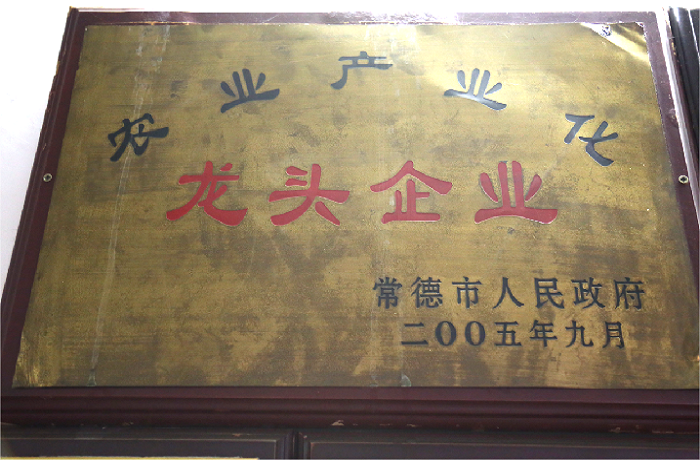 农业产业化
龙头企业
常德市人民政府
二00五年九月